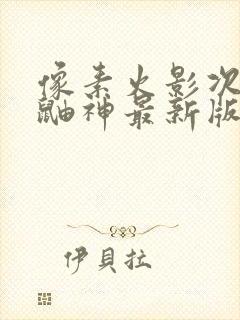 像素火影次
鼬神最新版
伊貝拉